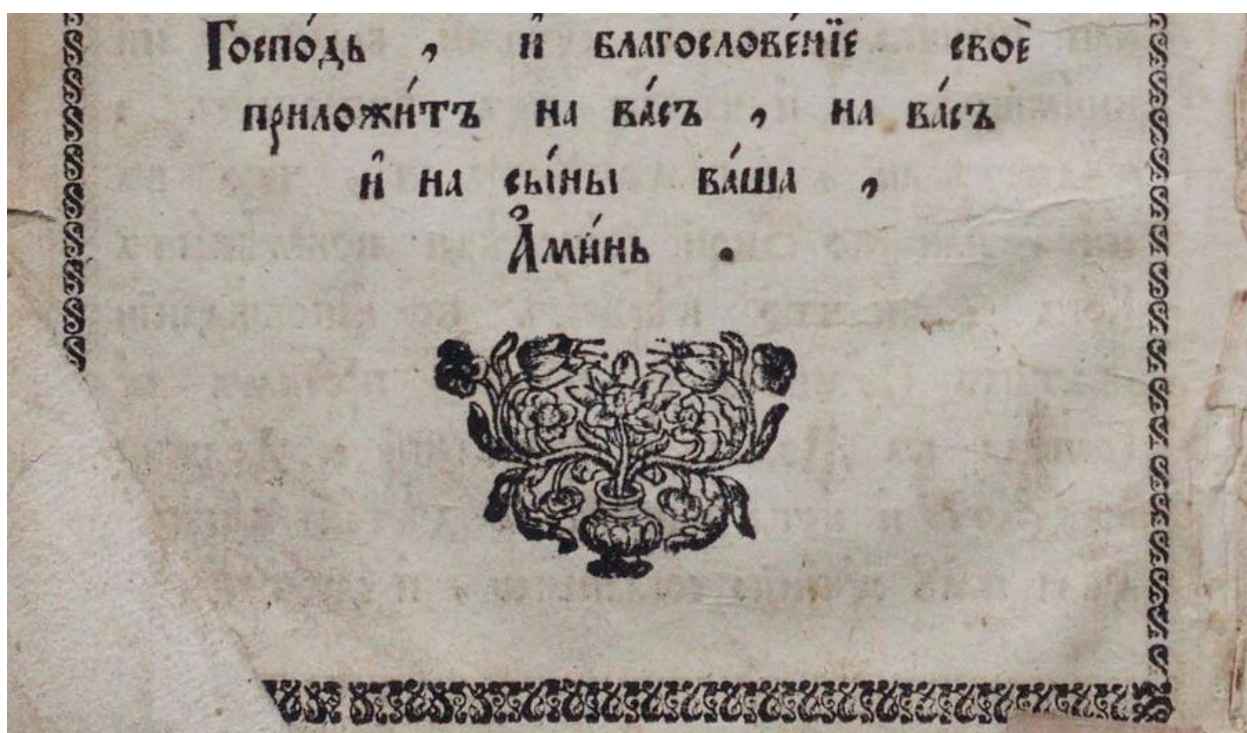 Госпо́дь , и҆ благослове́нїе своѐ
приложи́тъ на ва́съ , на ва́съ
и҆ на сы́ны ва́ша ,
А҆ми́нь .